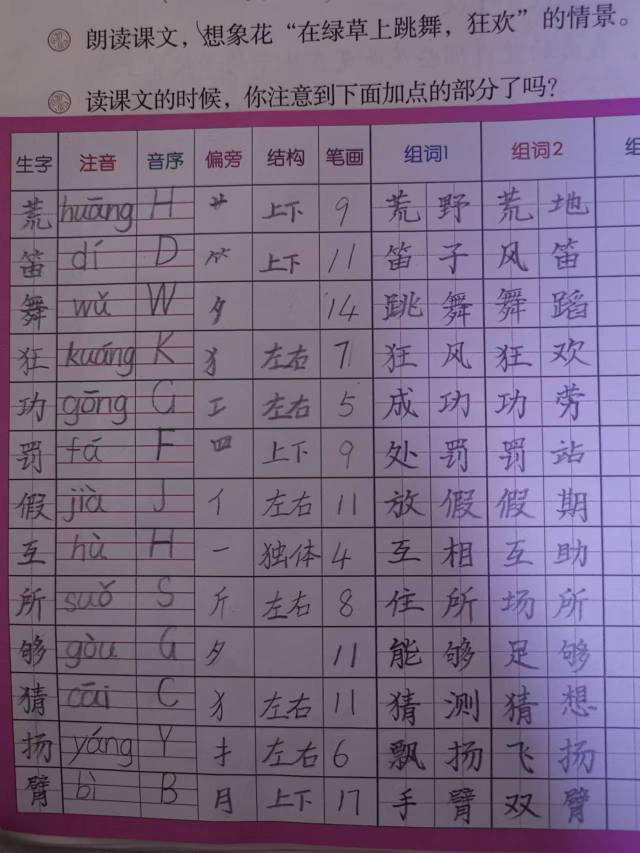 朗读课文，想象花“在绿草上跳舞，狂欢”的情景。
读课文的时候，你注意到下面加点的部分了吗？
生字 注音 音序 偏旁 结构 笔画 组词1 组词2 组
荒 huāng H 艹 上下 9 荒野 荒地
笛 dí D ⺮ 上下 11 笛子 风笛
舞 wǔ W 夕 14 跳舞 舞蹈
狂 kuáng K 犭 左右 7 狂风 狂欢
功 gōng G 工 左右 5 成功 功劳
罚 fá F 罒 上下 9 处罚 罚站
假 jià J 亻 左右 11 放假 假期
互 hù H 一 独体 4 互相 互助
所 suǒ S 斤 左右 8 住所 场所
够 gòu G 夕 11 能够 足够
猜 cāi C 犭 左右 11 猜测 猜想
扬 yáng Y 扌 左右 6 飘扬 飞扬
臂 bì B 月 上下 17 手臂 双臂